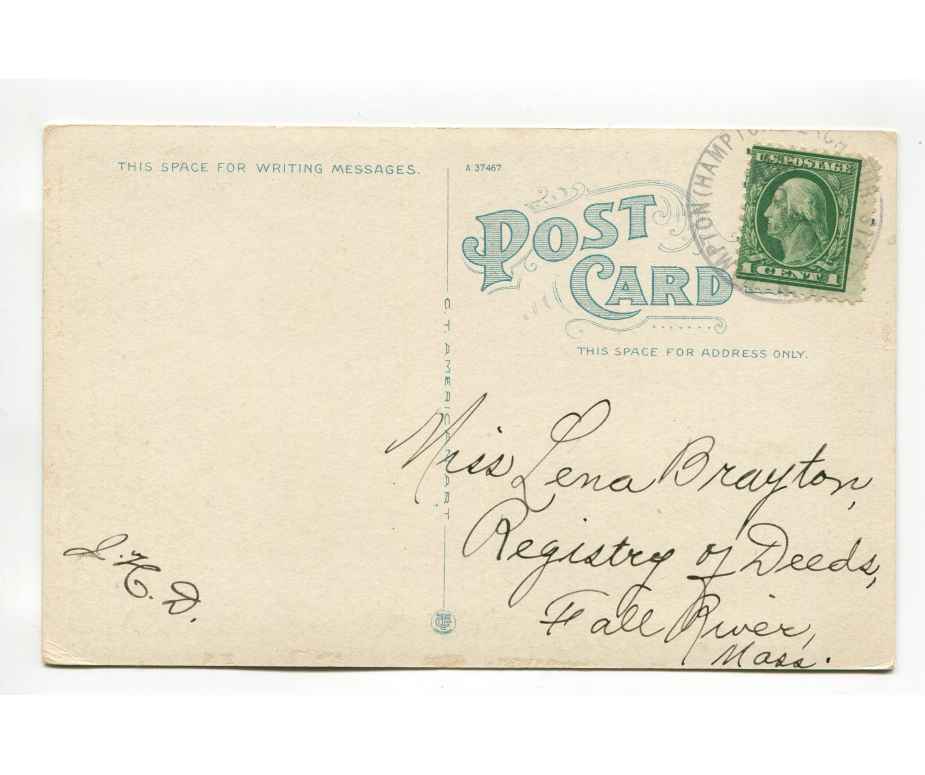 THIS SPACE FOR WRITING MESSAGES.
A 37467
POST
CARD
THIS SPACE FOR ADDRESS ONLY.
C. T. AMERICAN ART
U.S. POSTAGE
1 CENT 1
Miss Lena Brayton,
Registry of Deeds,
Fall River,
Mass.